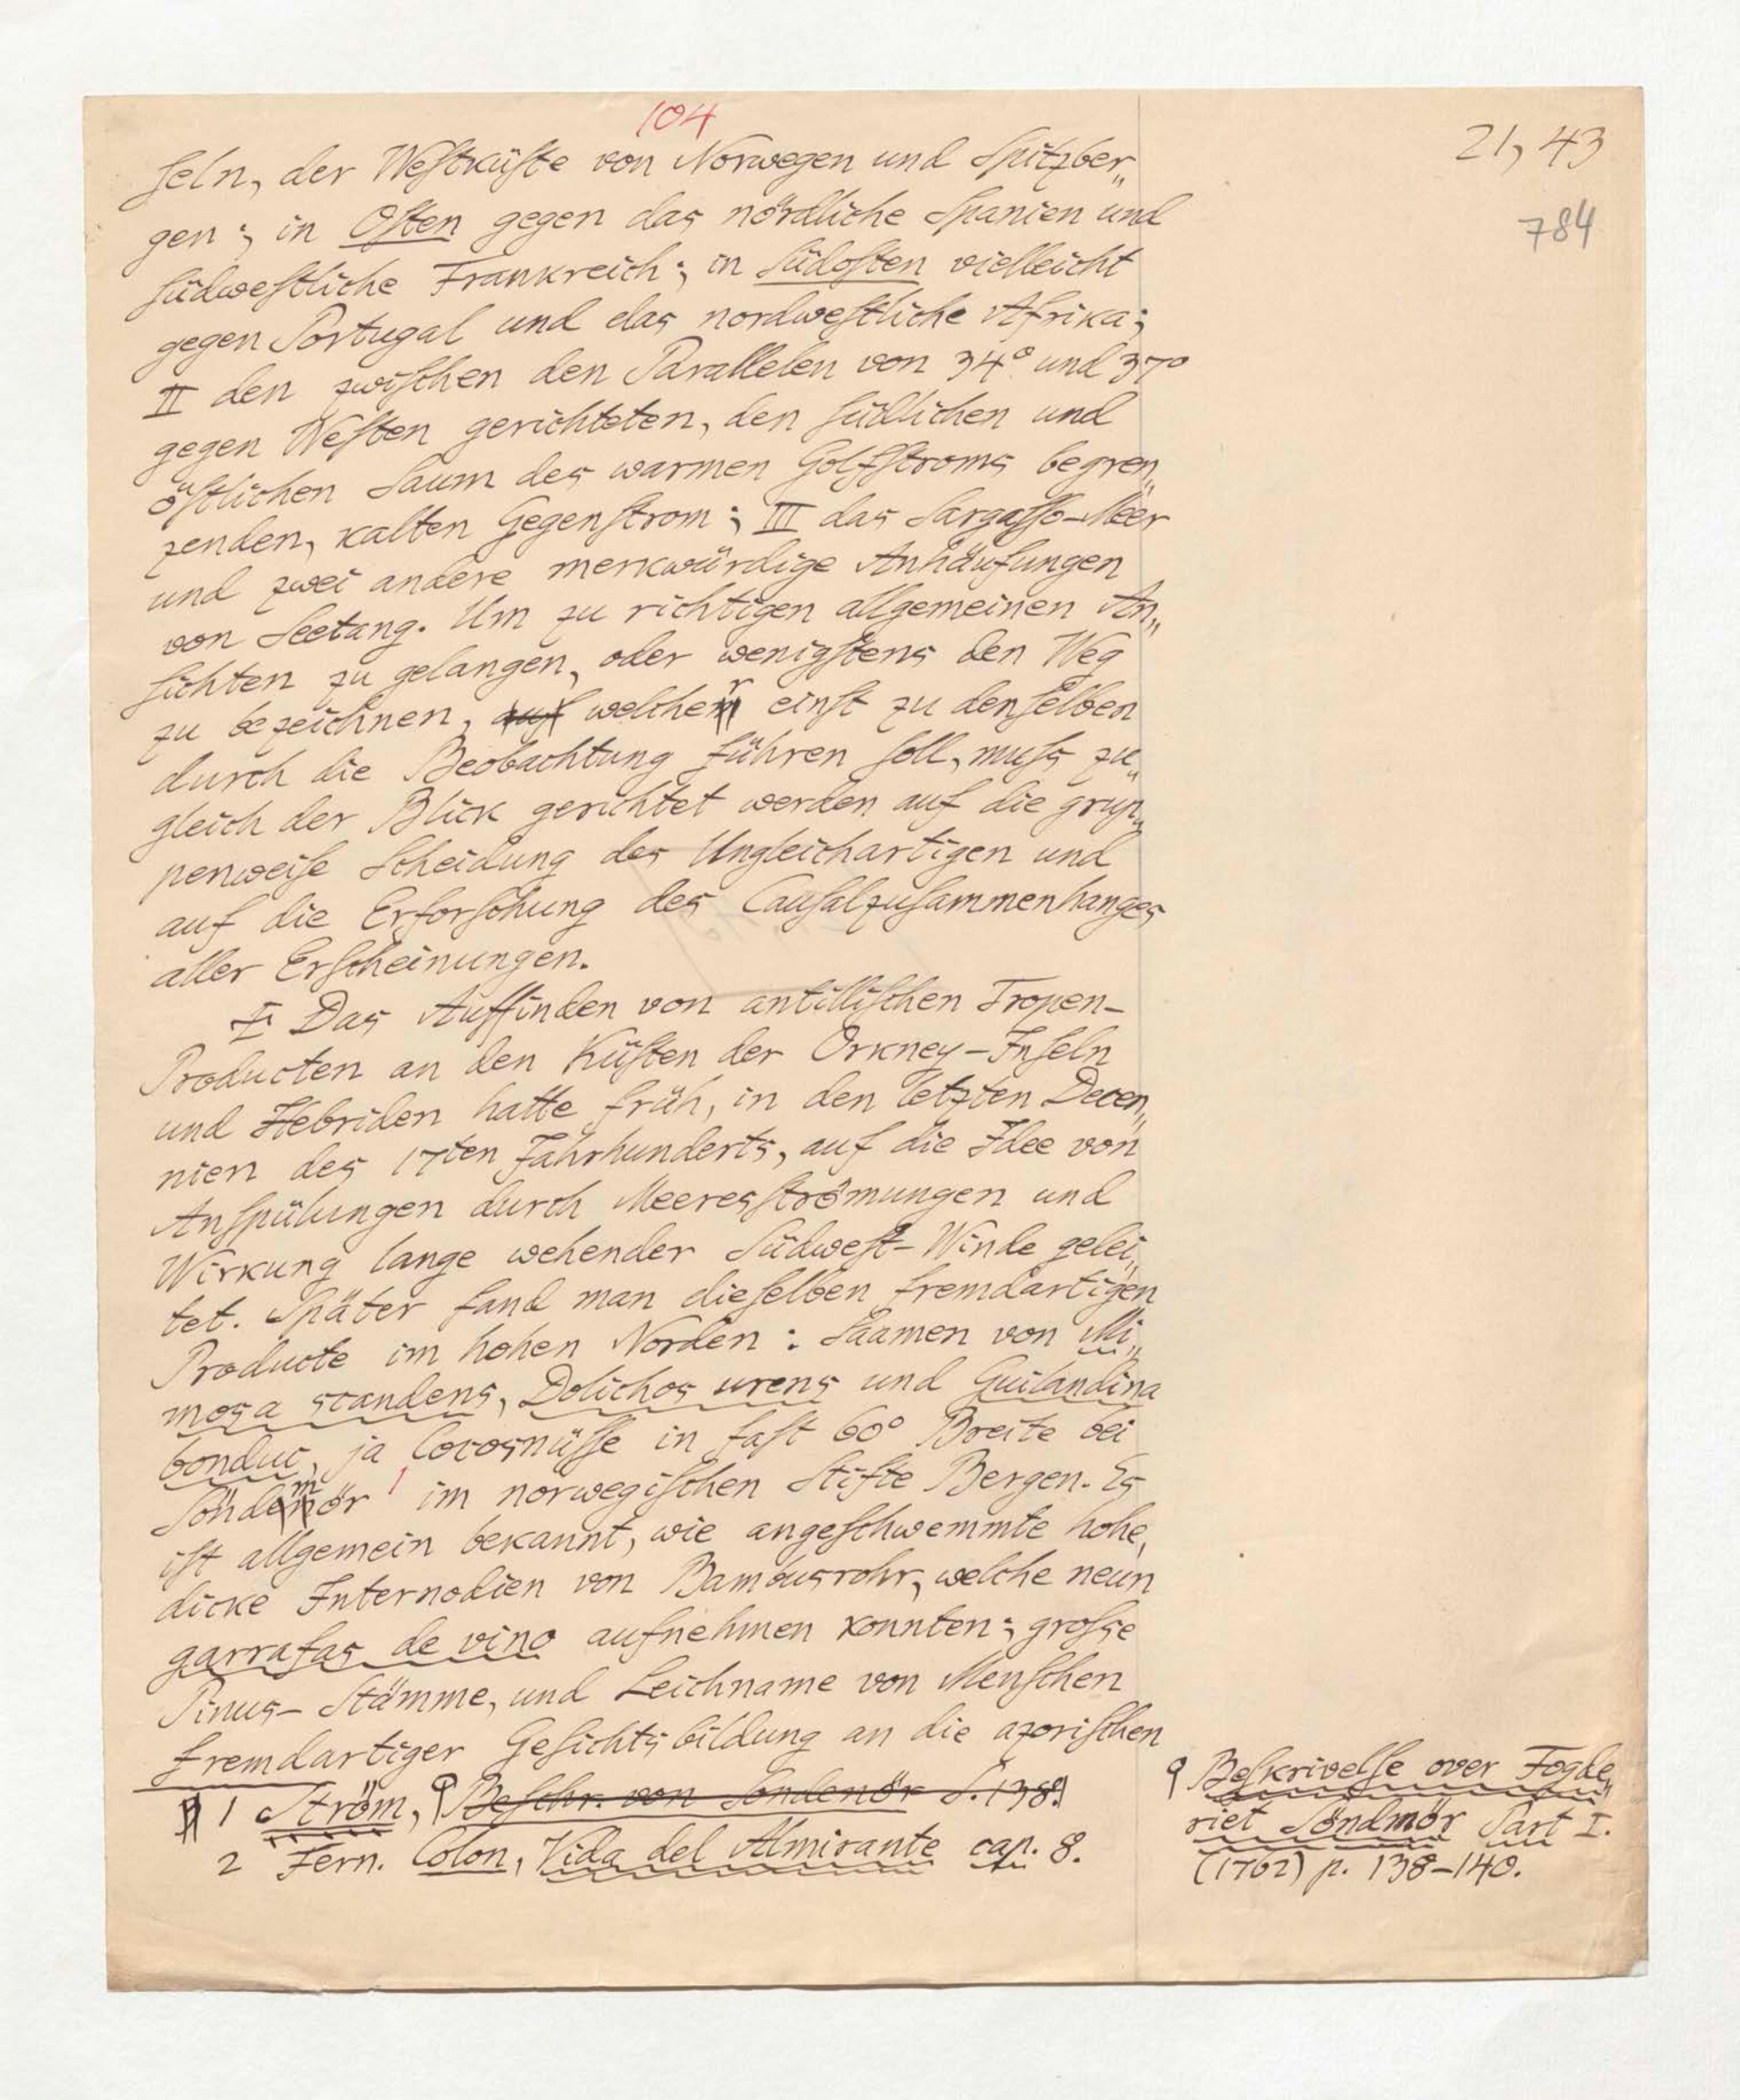 104
21, 43
784
seln, der Westküste von Norwegen und Spitzber„
gen; in Osten gegen das nördliche Spanien und
südwestliche Frankreich; in Südosten vielleicht
gegen Portugal und das nordwestliche Afrika;
II den zwischen den Parallelen von 34° und 37°
gegen Westen gerichteten, den südlichen und
östlichen Saum des warmen Golfstroms begren„
zenden, kalten Gegenstrom; III das Sargasso-Meer
und zwei andere merkwürdige Anhäufungen
von Seetang. Um zu richtigen allgemeinen An„
sichten zu gelangen, oder wenigstens den Weg
zu bezeichnen, auf welcher einst zu denselben
durch die Beobachtung führen soll, muss zu„
gleich der Blick gerichtet werden auf die grup„
penweise Scheidung des Ungleichartigen und
auf die Erforschung des Causalzusammenhanges
aller Erscheinungen.
I Das Auffinden von antillischen Tropen-
Producten an den Küsten der Orkney-Inseln
und Hebriden hatte früh, in den letzten Decen„
nien des 17ten Jahrhunderts, auf die Idee von
Anspülungen durch Meeresströmungen und
Wirkung lange wehender Südwest-Winde gelei„
tet. Später fand man dieselben fremdartigen
Producte im hohen Norden: Saamen von Mi„
mosa scandens, Dolichos urens und Guilandina
bonduc, ja Cocosnüsse in fast 60° Breite bei
Söndemör 1 im norwegischen Stifte Bergen. Es
ist allgemein bekannt, wie angeschwemmte hohe,
dicke Internodien von Bambusrohr, welche neun
garrafas de vino aufnehmen konnten; grosse
Pinus-Stämme, und Leichname von Menschen
fremdartiger Gesichtsbildung an die azorischen
1 Ström, Beschr. von Sondenör S. 138.
2 Fern. Colon, Vida del Almirante cap. 8.
Beskrivelse over Fogde„
riet Söndmör Part I.
(1762) p. 138-140.